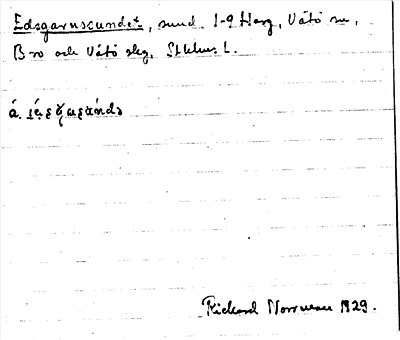 Edsgarnssundet, sund 1-9 Harg, Vätö sn,
Bro och Vätö skg, Sthlms L.
å.
Rickard Norrman 1929.